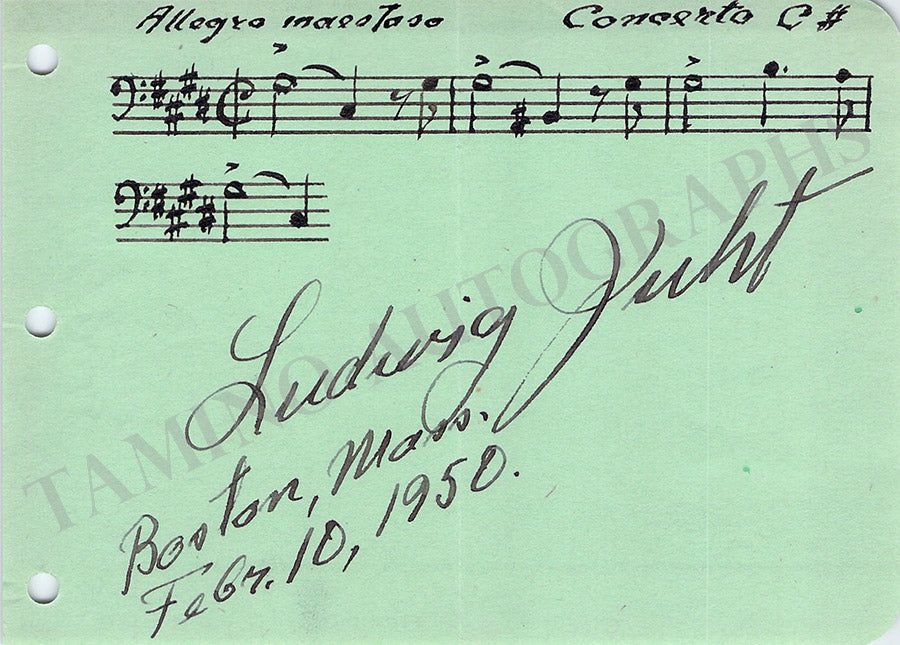 Allegro maestoso Concerto C#
Ludwig Juht
Boston, Mass.
Febr. 10, 1950.
TAMINO AUTOGRAPHS